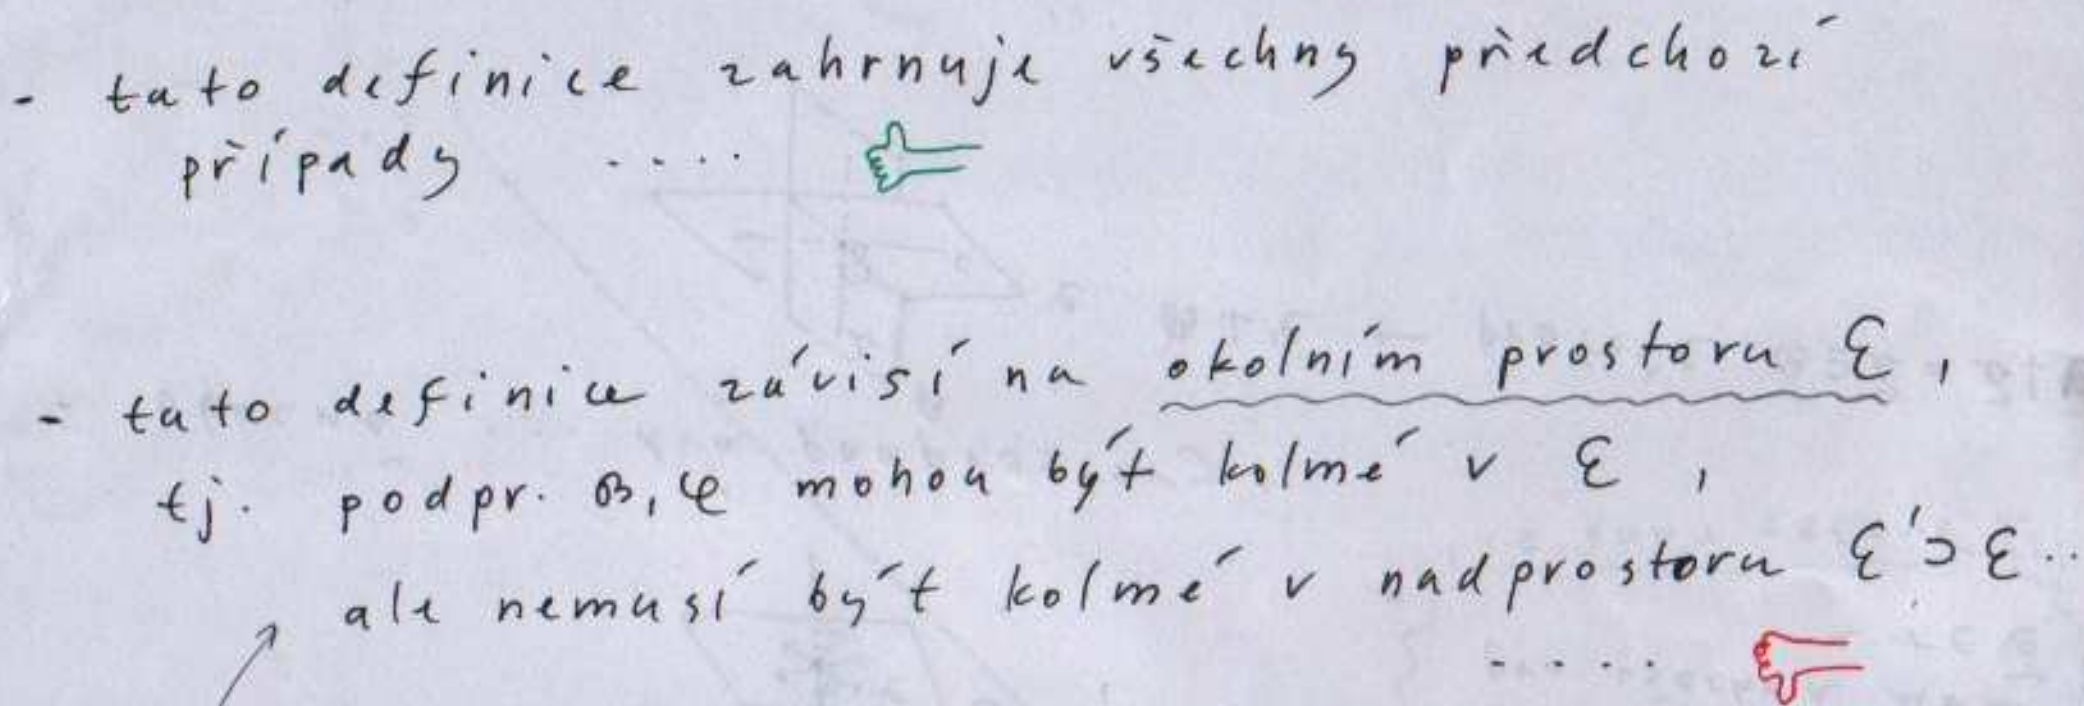 - tato definice zahrnuje všechny předchozí
případy ....
- tato definice závisí na okolním prostoru ℰ,
tj. podpr. ℬ, 𝒞 mohou být kolmé v ℰ,
ale nemusí být kolmé v nadprostoru ℰ'⊃ℰ..
.....